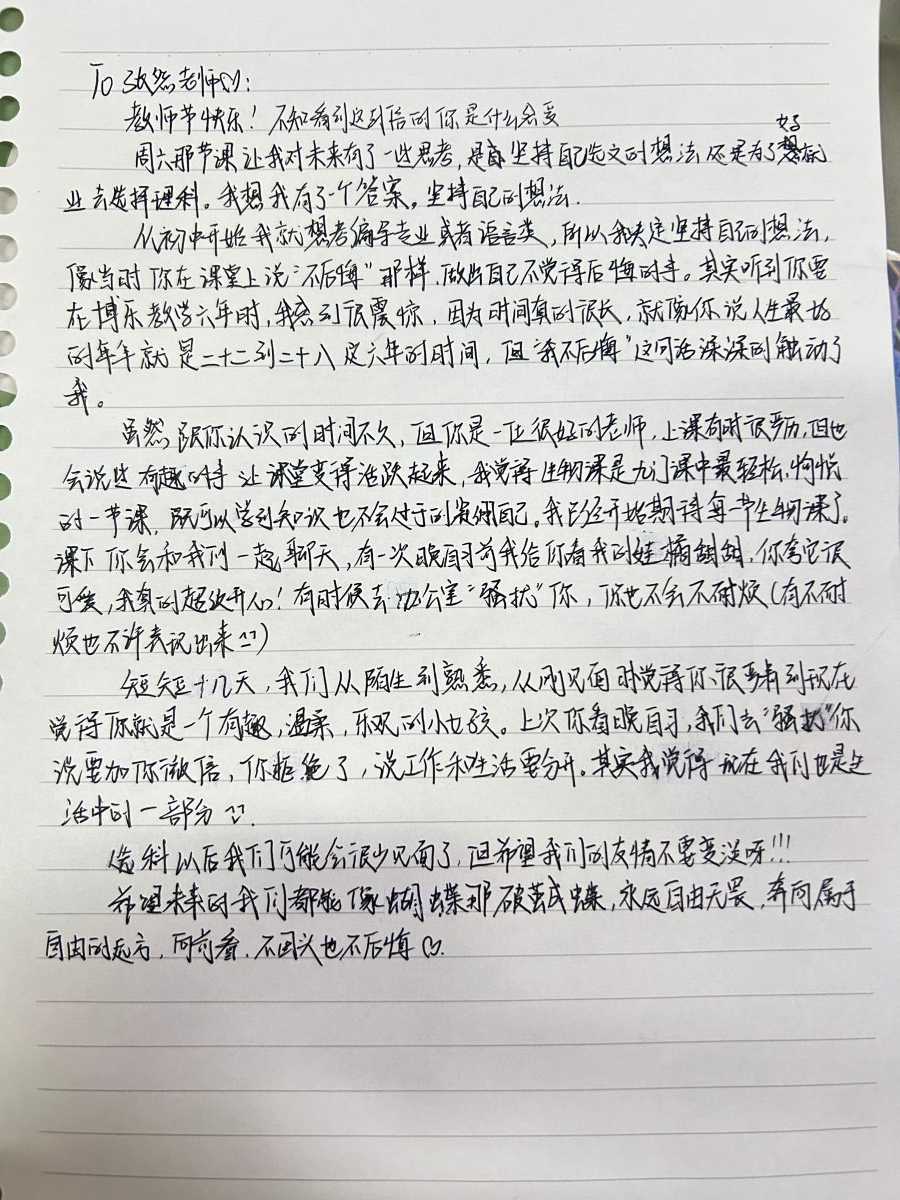 To 张然老师♡:
教师节快乐!不知看到这封信的你是什么感受
周六那节课让我对未来有了一些思考,是 坚持自己选文的想法还是为了好就
业去选择理科。我想我有了一个答案。坚持自己的想法.
从初中开始我就想考编导专业或者语言类,所以我决定坚持自己的想法,
像当时你在课堂上说“不后悔”那样,做出自己不觉得后悔的事。其实听到你要
在博乐教学六年时,我感到很震惊,因为时间真的很长,就像你说人生最好
的年华就是二十二到二十八这六年的时间,但“我不后悔”这句话深深的触动了
我。
虽然跟你认识的时间不久,但你是一位很好的老师,上课有时很严厉,但也
会说些有趣的事让课堂变得活跃起来,我觉得生物课是九门课中最轻松,愉悦
的一节课,既可以学到知识也不会过于的 自己。我已经开始期待每一节生物课了。
课下你会和我们一起聊天,有一次晚自习前我给你看我的娃 甜甜,你夸它很
可爱,我真的超级开心!有时候去办公室“骚扰”你,你也不会不耐烦(有不耐
烦也不许表现出来ヨヨ)
短短十几天,我们从陌生到熟悉,从刚见面时觉得你很严肃到现在
觉得你就是一个有趣,温柔,乐观的小女孩。上次你看晚自习,我们去“骚扰”你
说要加你微信,你拒绝了,说工作和生活要分开。其实我觉得现在我们也是生
活中的一部分ヨヨ.
选科以后我们可能会很少见面了,但希望我们的友情不要变淡呀!!!
希望未来的我们都能像蝴蝶那破茧成蝶,永远自由无畏,奔向属于
自由的远方,向前看,不回头也不后悔♡.